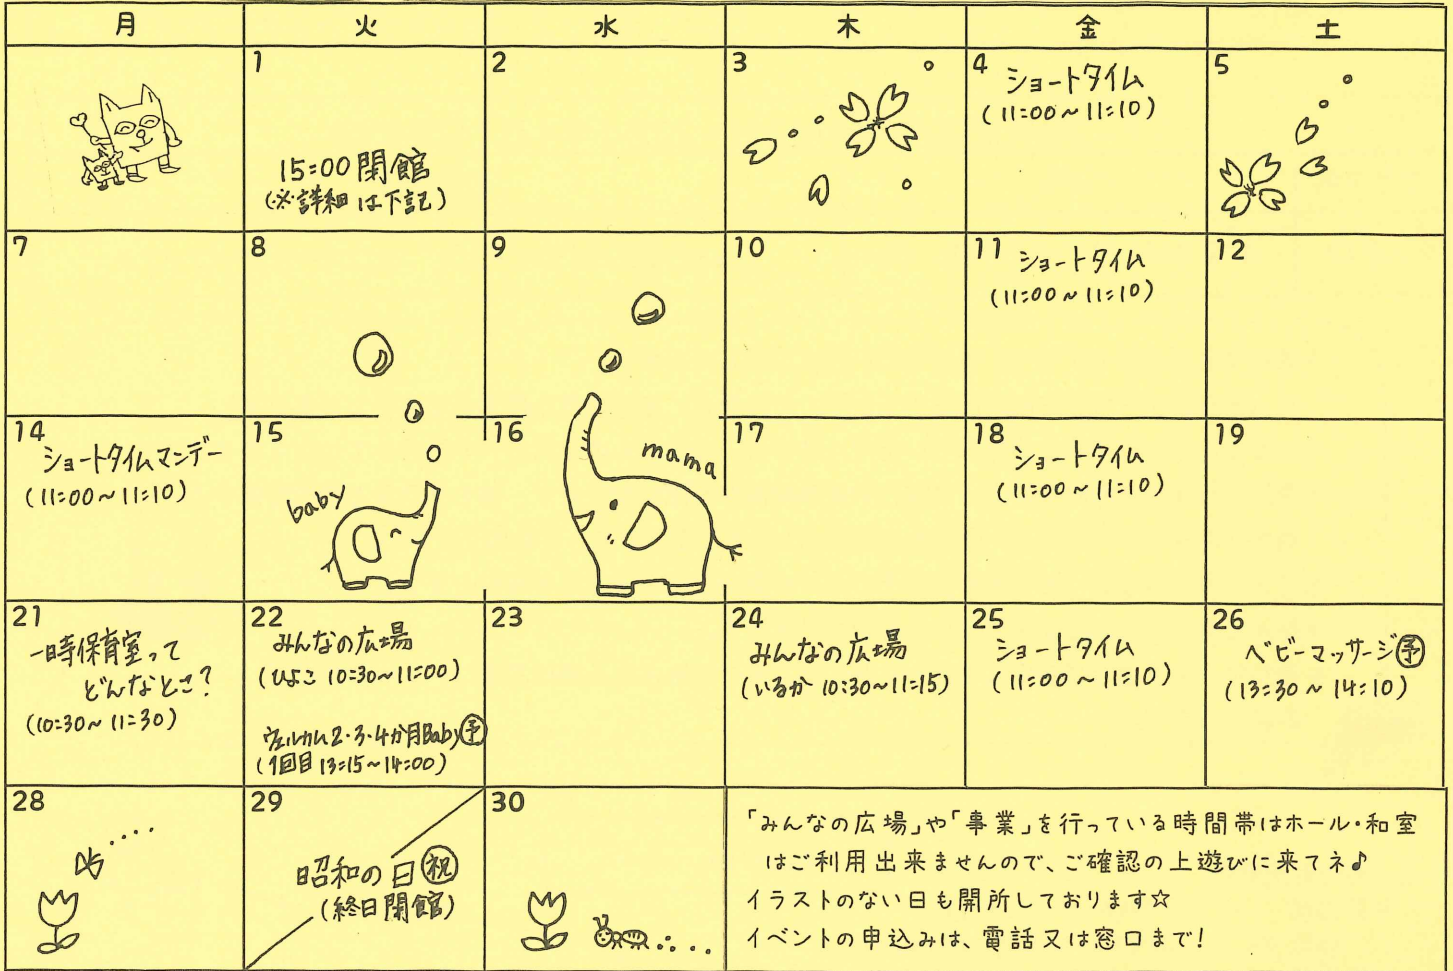 月 火 水 木 金 土
1
15:00 閉館
(※詳細は下記)
2
3
4
ショートタイム
(11:00～11:10)
5
7
8
9
10
11
ショートタイム
(11:00～11:10)
12
14
ショートタイムマンデー
(11:00～11:10)
15
baby
16
mama
17
18
ショートタイム
(11:00～11:10)
19
21
一時保育室って
どんなとこ?
(10:30～11:30)
22
みんなの広場
(ひよこ 10:30～11:00)
ウェルカム2・3・4か月Baby予
(1回目 13:15～14:00)
23
24
みんなの広場
(いるか 10:30～11:15)
25
ショートタイム
(11:00～11:10)
26
ベビーマッサージ予
(13:30～14:10)
28
29
昭和の日祝
(終日閉館)
30
「みんなの広場」や「事業」を行っている時間帯はホール・和室
はご利用出来ませんので、ご確認の上遊びに来てネ♪
イラストのない日も開所しております☆
イベントの申込みは、電話又は窓口まで!